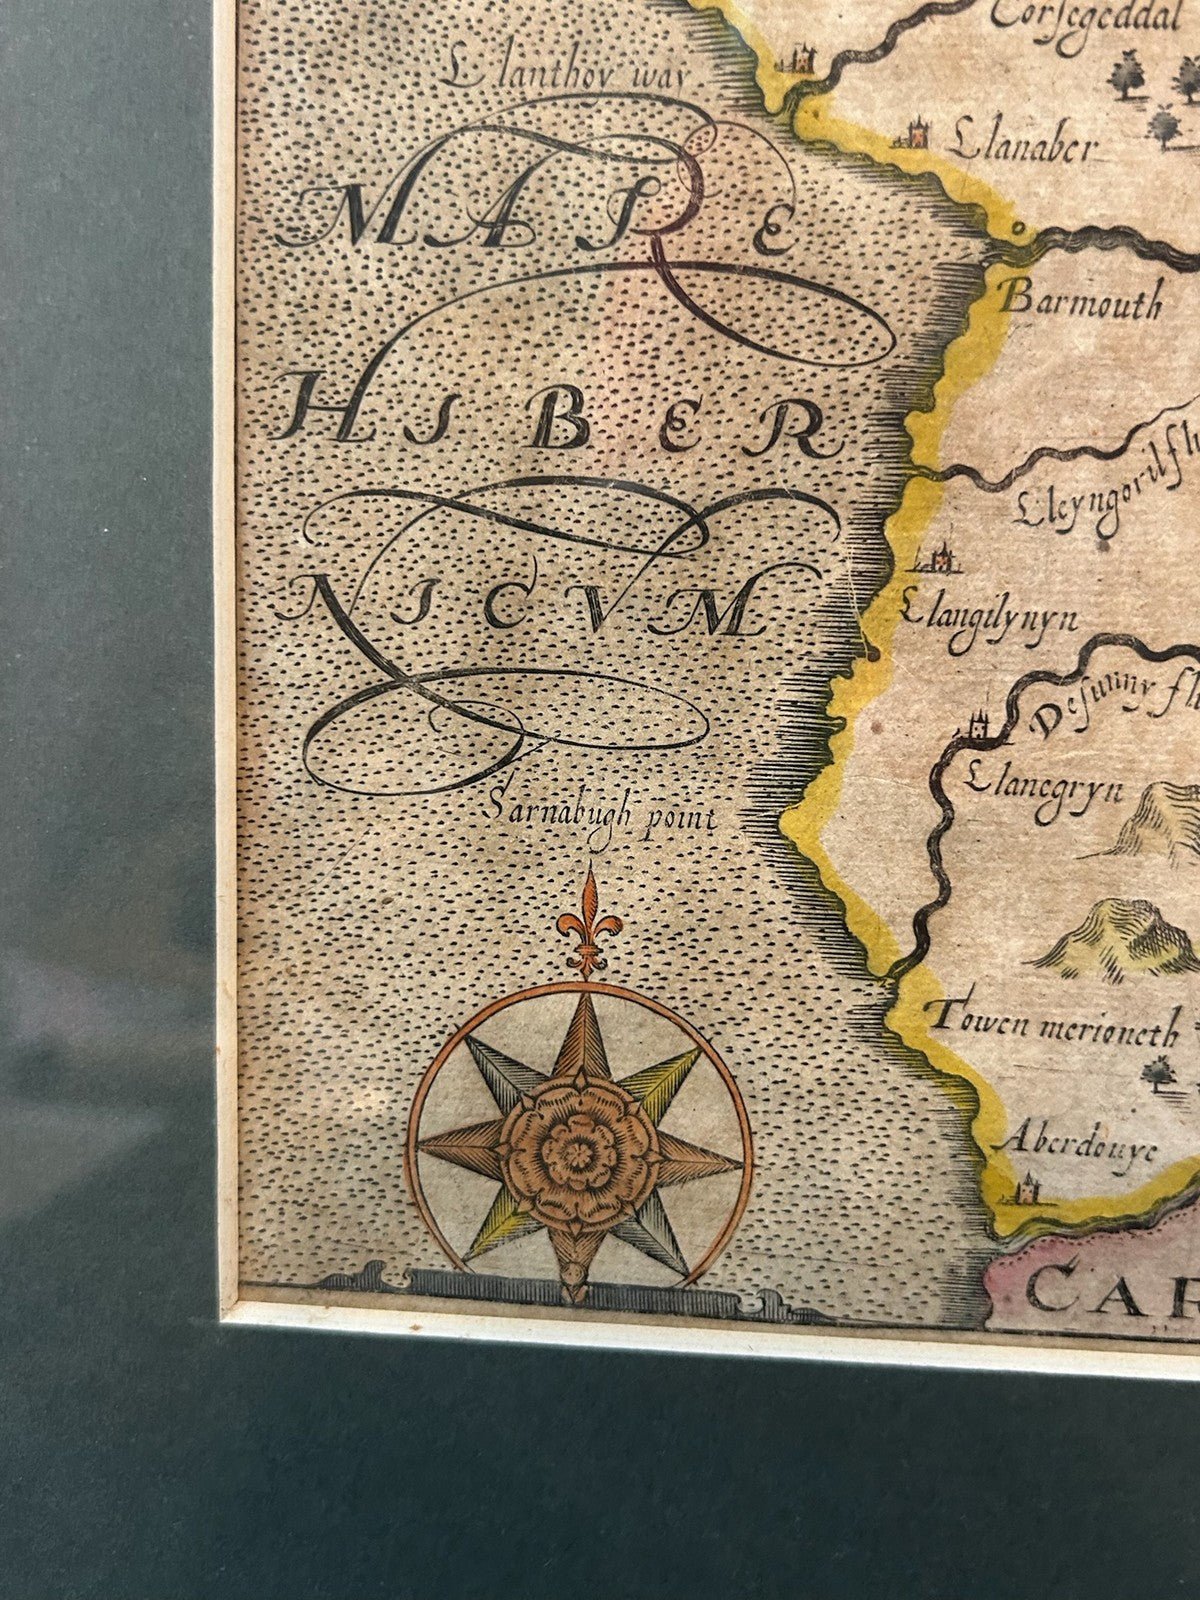 Corsegeddal
Llanthoy way
Llanaber
MARE
Barmouth
HIBER
Lleyngoril flu
NICVM
Llangilynyn
Desunny fl
Llanegryn
Sarnabugh point
Towen merioneth
Aberdouye
CAR